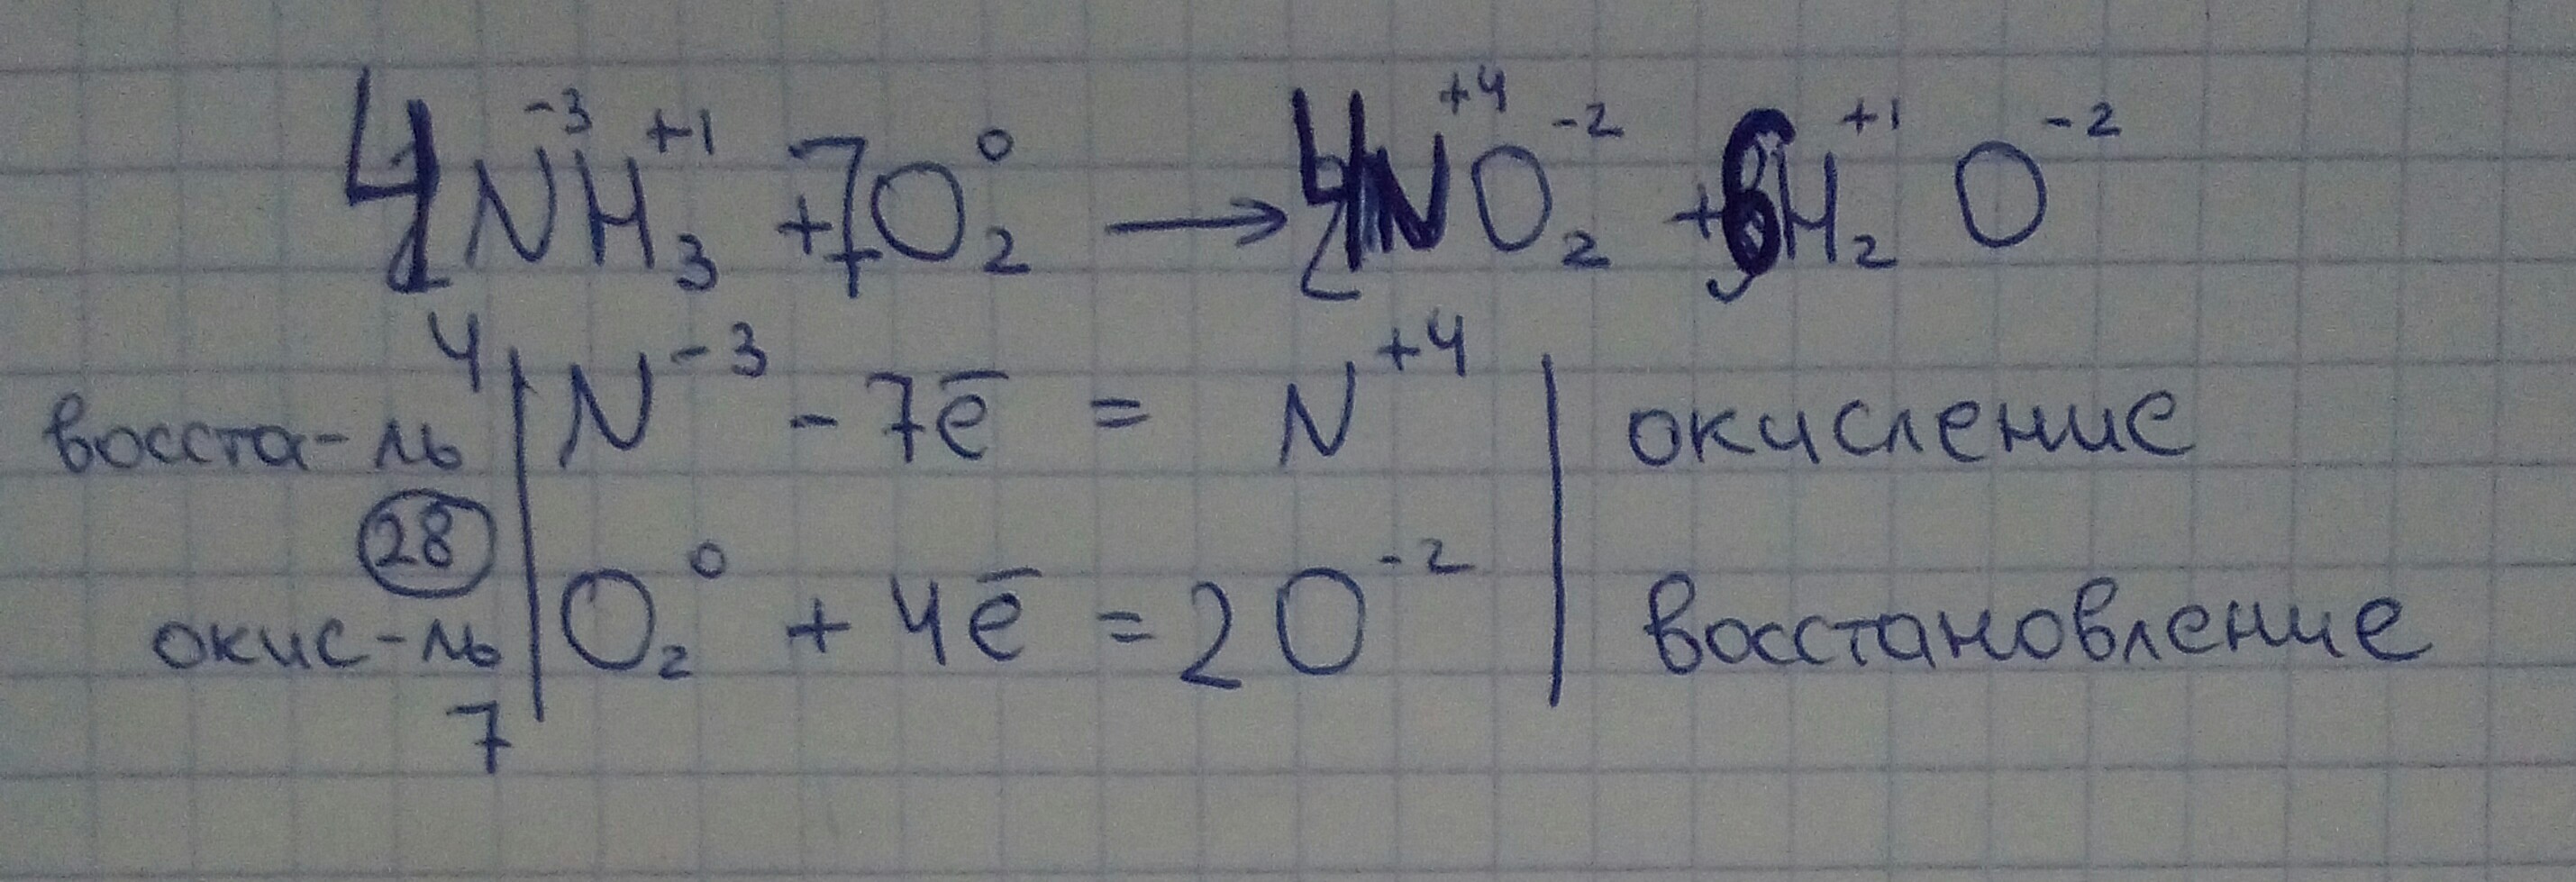 4N⁻³H⁺¹₃ + 7O⁰₂ → 4N⁺⁴O⁻²₂ + 6H⁺¹₂O⁻²
4
восста-ль | N⁻³ - 7ē = N⁺⁴ | окисление
28
окис-ль | O₂⁰ + 4ē = 2O⁻² | восстановление
7